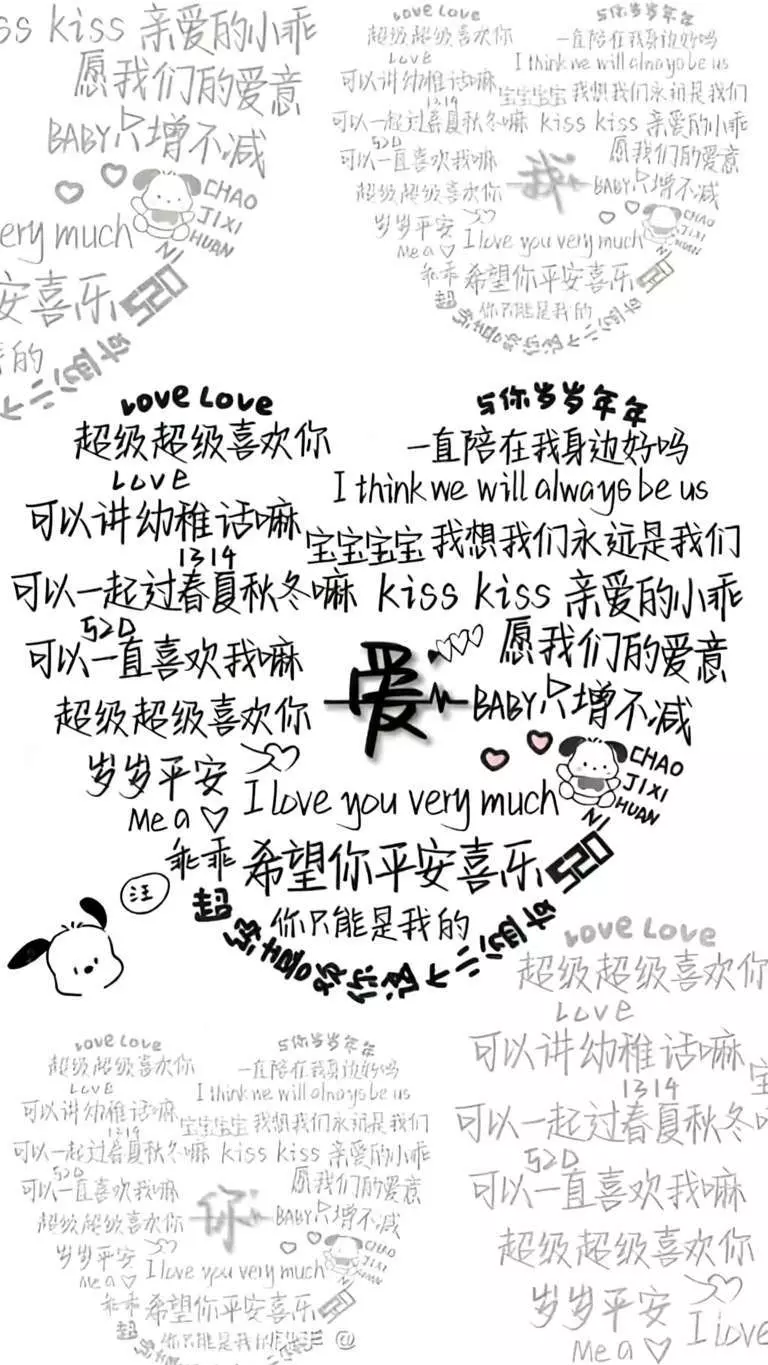 ss kiss 亲爱的小乖
愿我们的爱意
BABY只增不减
CHAO
JIXI
HUAN
NI
ery much
安喜乐
520
的
Love Love
超级超级喜欢你
Love
可以讲幼稚话嘛
1314
可以一起过春夏秋冬嘛
520
可以一直喜欢我嘛
超级超级喜欢你
岁岁平安
Me a
乖乖
与你岁岁年年
一直陪在我身边好吗
I think we will always be us
宝宝宝宝 我想我们永远是我们
kiss kiss 亲爱的小乖
愿我们的爱意
我
BABY只增不减
CHAO
JIXI
HUAN
NI
I love you very much
希望你平安喜乐
你只能是我的
Love Love
与你岁岁年年
超级超级喜欢你
一直陪在我身边好吗
Love
I think we will always be us
可以讲幼稚话嘛
宝宝宝宝 我想我们永远是我们
1314
可以一起过春夏秋冬嘛
kiss kiss 亲爱的小乖
520
可以一直喜欢我嘛
愿我们的爱意
爱
超级超级喜欢你
BABY只增不减
岁岁平安
CHAO
JIXI
HUAN
NI
Me a
I love you very much
乖乖
希望你平安喜乐
520
你只能是我的
超级喜欢你
汪
Love Love
超级超级喜欢你
Love
可以讲幼稚话嘛
1314
可以一起过春夏秋冬嘛
520
可以一直喜欢我嘛
超级超级喜欢你
岁岁平安
Me a
乖乖
与你岁岁年年
一直陪在我身边好吗
I think we will always be us
宝宝宝宝 我想我们永远是我们
kiss kiss 亲爱的小乖
愿我们的爱意
你
BABY只增不减
CHAO
JIXI
HUAN
I love you very much
希望你平安喜乐
你只能是我的
@
Love Love
超级超级喜欢你
Love
可以讲幼稚话嘛
宝
1314
可以一起过春夏秋冬
520
可以一直喜欢我嘛
超级超级喜欢你
岁岁平安
Me a
I love